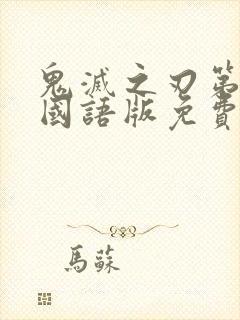 鬼滅之刃第
國語版免費
馬蘇